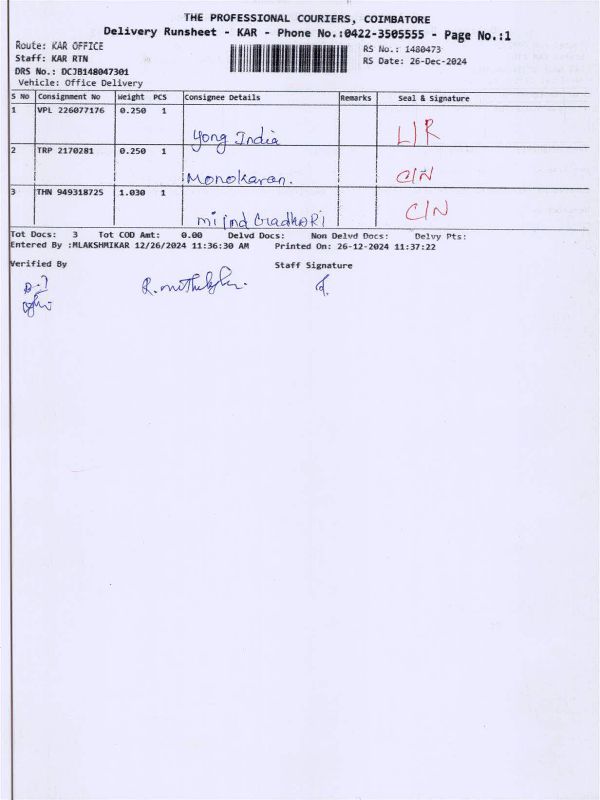 THE PROFESSIONAL COURIERS, COIMBATORE
Delivery Runsheet - KAR - Phone No.:0422-3505555 - Page No.:1
Route: KAR OFFICE
Staff: KAR RTN
DRS No.: DCJB148047301
Vehicle: Office Delivery
RS No.: 1480473
RS Date: 26-Dec-2024
S No Consignment No Weight PCS Consignee Details Remarks Seal & Signature
1 VPL 226077176 0.250 1 Yong India L/R
2 TRP 2170281 0.250 1 Monokaran. C/N
3 THN 949318725 1.030 1 C/N
Tot Docs: 3 Tot COD Amt: 0.00 Delvd Docs: Non Delvd Docs: Delvy Pts:
Entered By :MLAKSHMIKAR 12/26/2024 11:36:30 AM Printed On: 26-12-2024 11:37:22
Verified By Staff Signature